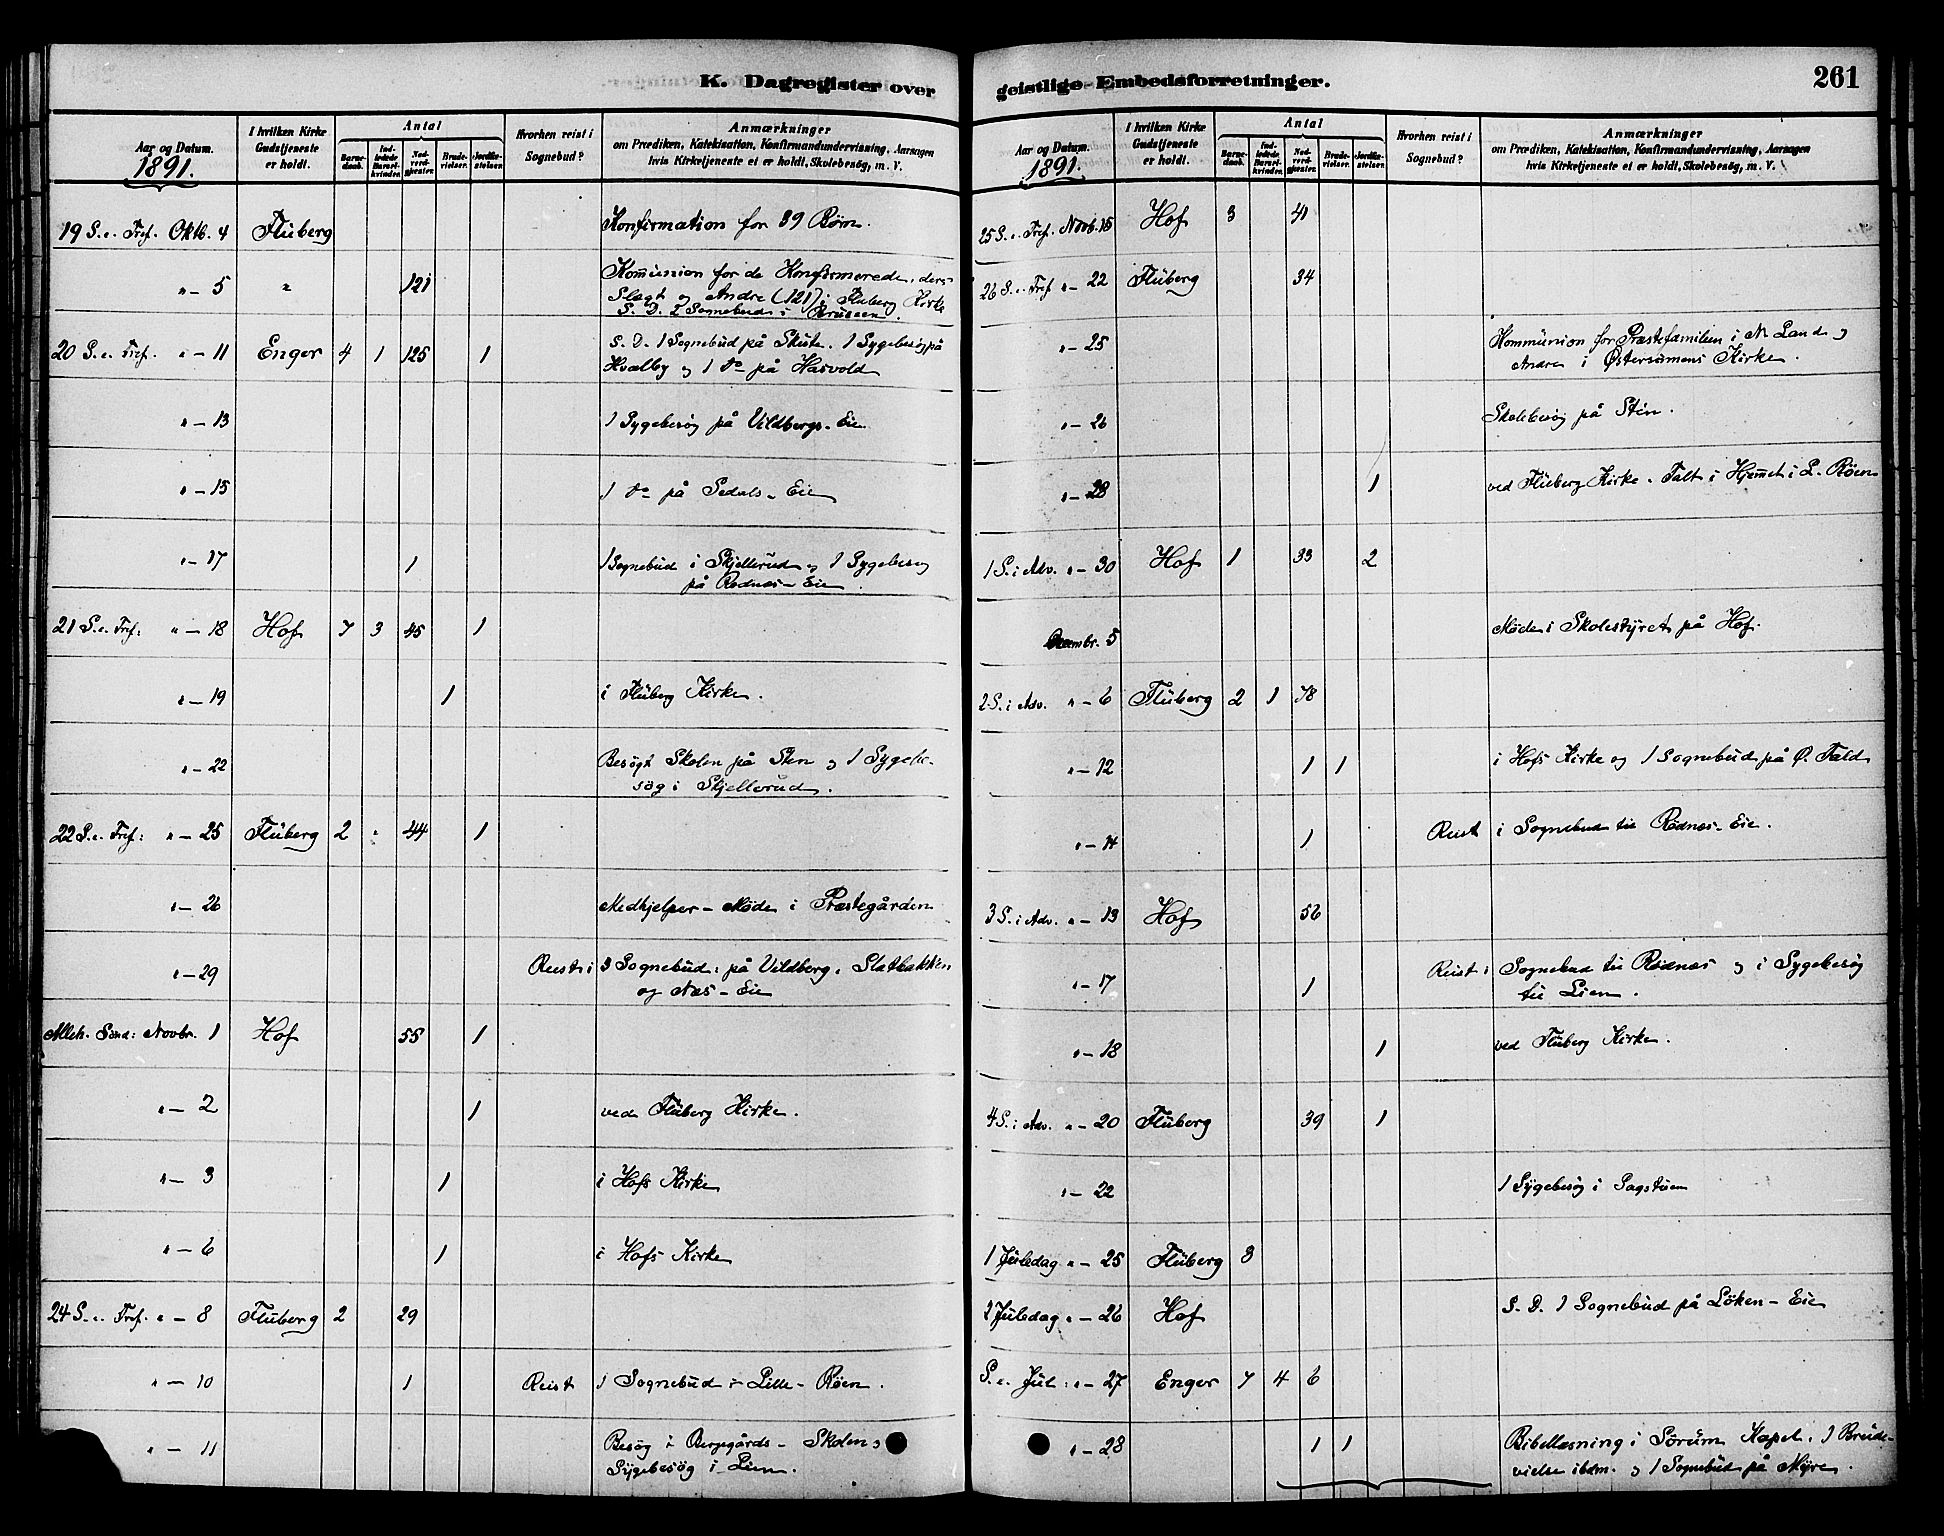 K. Dagregister over
Aar og Datum.
1891.
I hvilken Kirke
Gudstjeneste
er holdt.
Antal
Barne-
daab.
Ind-
ledede
Barsel-
kvinder.
Nad-
verd-
gjester.
Brude-
vielser.
Jordfæ-
stelser.
Hvorhen reist i
Sognebud?
Anmærkninger
om Prædiken, Katekisation, Konfirmandundervisning, Aarsagen
hvis Kirketjeneste et er holdt, Skolebesøg, m. V.
19 S. e. Tref. Oktb. 4 Fluberg Konfirmation for 39 Børn.
" — 5 " 121 Kommunion for de Konfirmerede, deres
Slægt og Andre (121) i Fluberg Kirke
S. D. 2 Sognebud i
20 S. e. Tref. " — 11 Enger 4 1 125 1 S. D. 1 Sognebud på Skute. 1 Sygebesøg på
Hvalby og 1 do på Hasvold
" — 13 1 Sygebesøg på Vildbergs-Eie
" — 15 1 do på Sedals-Eie
" — 17 1 1 Sognebud i Skjellerud og 1 Sygebesøg
på Rødnæs-Eie.
21 S. e. Tref: " — 18 Hof 7 3 45 1
" — 19 1 i Fluberg Kirke.
" — 22 Besøgt Skolen på Sten og 1 Sygebe-
søg i Skjellerud.
22 S. e. Tref: " — 25 Fluberg 2 " 44 1
" — 26 Medhjelper-Møde i Præstegården
" — 29 Reist i 3 Sognebud: på Vildberg, Slatbakken
og Næs-Eie
Alleh. Sønd: Novbr. 1 Hof 55 1
" — 2 1 ved Fluberg Kirke.
" — 3 1 i Hofs Kirke
" — 6 1 i Hofs Kirke
24 S. e. Tref. " — 8 Fluberg 2 29
" — 10 1 Reist 1 Sognebud i Lille-Røen.
" — 11 Besøg i Skolen og
Sygebesøg i Lien.
geistlige Embedsforretninger.
261
Aar og Datum.
1891.
I hvilken Kirke
Gudstjeneste
er holdt.
Antal
Barne-
daab.
Ind-
ledede
Barsel-
kvinder.
Nad-
verd-
gjester.
Brude-
vielser.
Jordfæ-
stelser.
Hvorhen reist i
Sognebud?
Anmærkninger
om Prædiken, Katekisation, Konfirmandundervisning, Aarsagen
hvis Kirketjeneste et er holdt, Skolebesøg, m. V.
25 S. e. Tref. Novb. 15 Hof 3 41
26 S. e. Tref " — 22 Fluberg 34
" — 25 Kommunion for Præstefamilien i N. Land og
Andre i Østersinnens Kirke.
" — 26 Skolebesøg på Sten.
" — 28 1 ved Fluberg Kirke. Talt i Hjemmet i L. Røen
1 S. i Adv. " — 30 Hof 1 33 2
Decembr. 5 Møde i Skolestyret på Hof.
2 S. i Adv. " — 6 Fluberg 2 1 78
" — 12 1 1 i Hofs Kirke og 1 Sognebud på Ø. Fald
" — 14 1 Reist i Sognebud til Rødnæs-Eie.
3 S. i Adv. " — 13 Hof 56
" — 17 1 Reist i Sognebud til Rødnæs og i Sygebesøg
til Lien.
" — 18 1 ved Fluberg Kirke.
4 S. i Adv. " — 20 Fluberg 39 1
" — 22 1 Sygebesøg i Sagstuen
1 Juledag " — 25 Fluberg 3
2 Juledag " — 26 Hof S. D. 1 Sognebud på Løken-Eie
S. e. Jul: " — 27 Enger 7 4 6
" — 28 1 1 Bibellæsning i Sørum Kapel. 1 Brude-
vielse ibdm. og 1 Sognebud på Myre.